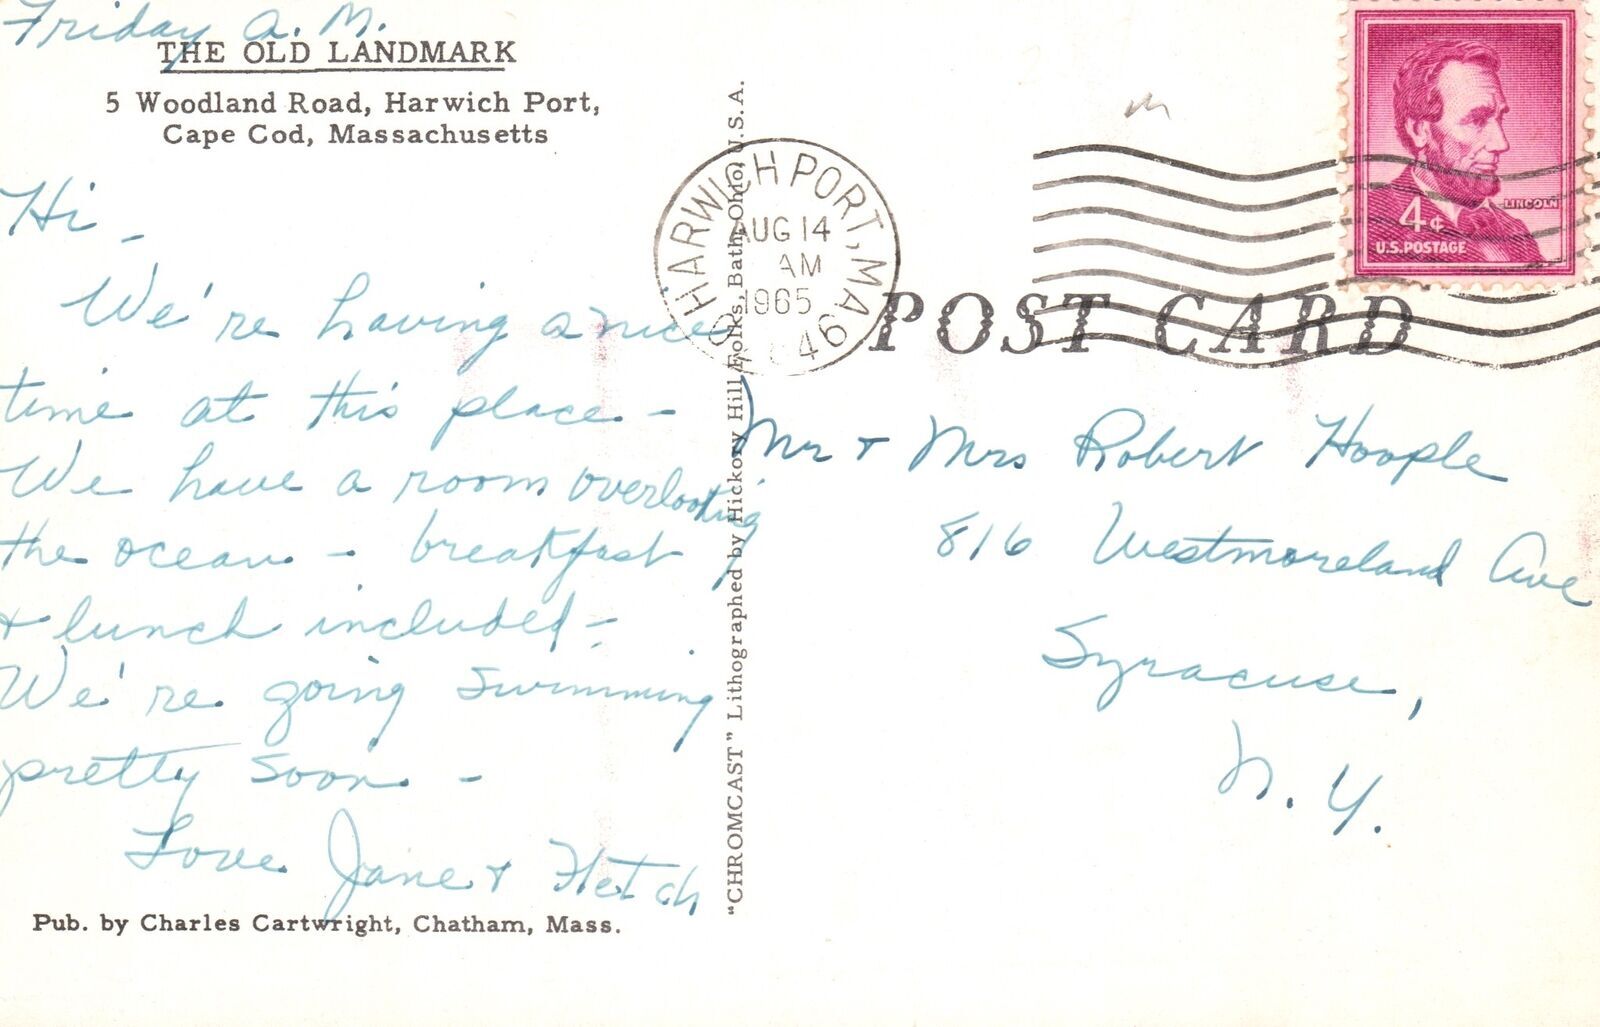 Friday a.m.
THE OLD LANDMARK
5 Woodland Road, Harwich Port,
Cape Cod, Massachusetts
Hi -
We're having a nice
time at this place -
We have a room overlooking
the ocean - breakfast
+ lunch included -
We're going swimming
pretty soon -
Love Jane + Fletch
Pub. by Charles Cartwright, Chatham, Mass.
"CHROMCAST" Lithographed by Hickory Hill Folks, Bath, Ohio, U.S.A.
HARWICH PORT, MA
AUG 14
AM
1965
46
LINCOLN
4¢
U.S. POSTAGE
POST CARD
Mr + Mrs Robert Hoople
816 Westmoreland Ave
Syracuse,
N.Y.